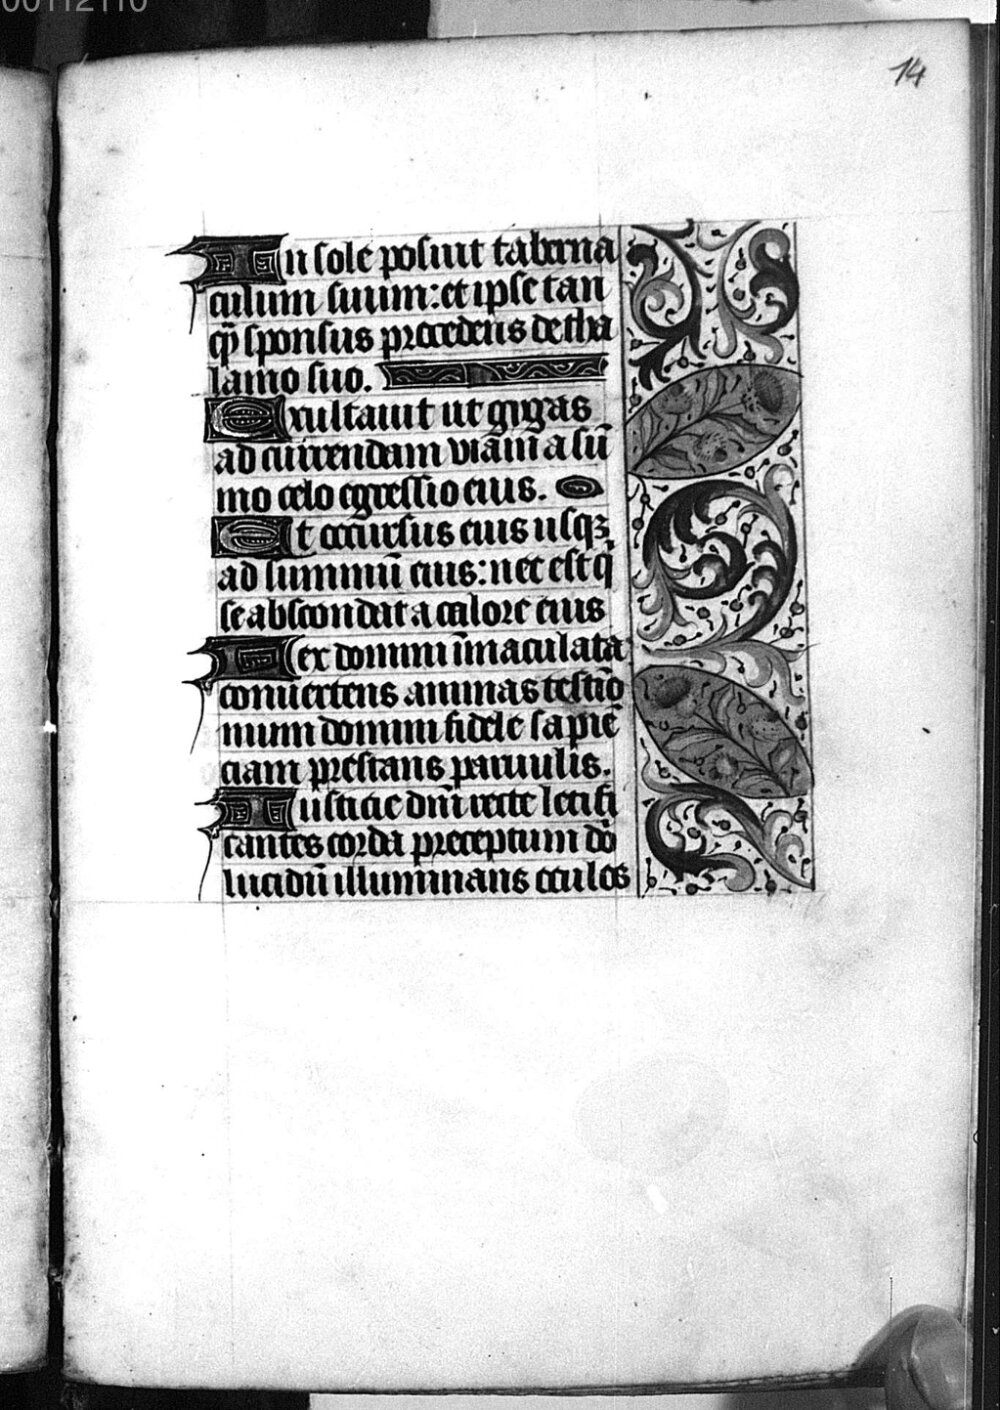 00112110
14
In sole posuit taberna
culum suum: et ipse tan
qͣ sponsus procedens de tha
lamo suo.
Exultauit ut gygas
ad currendam uiam a sū
mo celo egressio eius.
Et occursus eius usqꝫ
ad summū eius: nec est q̄
se abscondat a calore eius
Lex domini īmaculata
conuertens animas testīo
nium domini fidele sapiē
ciam prestans paruulis.
Iusticie dn̄i recte letifi
cantes corda preceptum dō
lucidū illuminans oculos